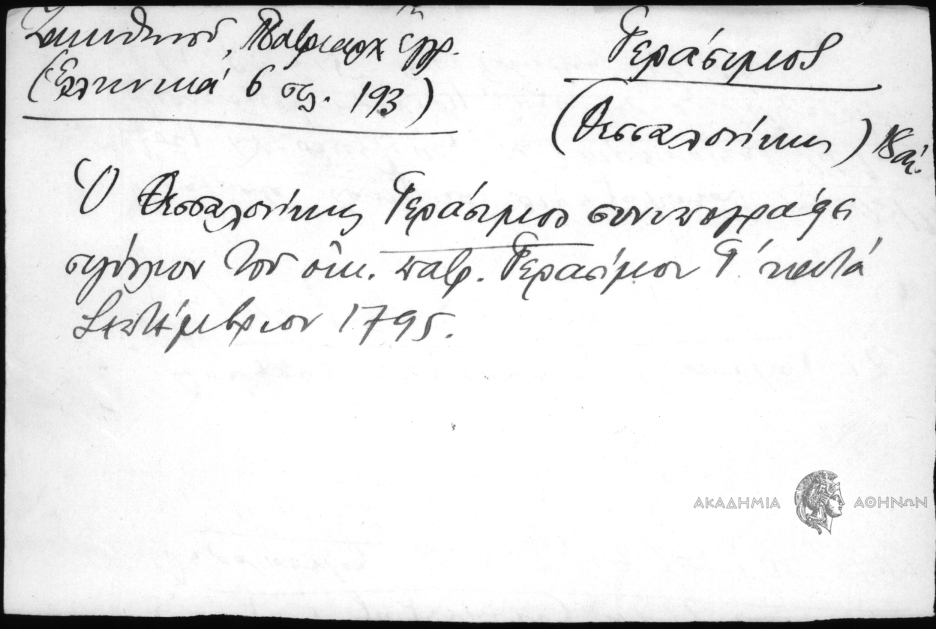 Ζακυθηνοῦ, Πατριαρχ. ἔγγρ.
(Ἑλληνικά 6 σελ. 193)
Γεράσιμος
(Θεσσαλονίκης) 18 αἰ.
Ὁ Θεσσαλονίκης Γεράσιμος συνυπογράφει
σιγίλλιον τοῦ οἰκ. πατρ. Γερασίμου Γ΄ κατά
Σεπτέμβριον 1795.
ΑΚΑΔΗΜΙΑ ΑΘΗΝΩΝ